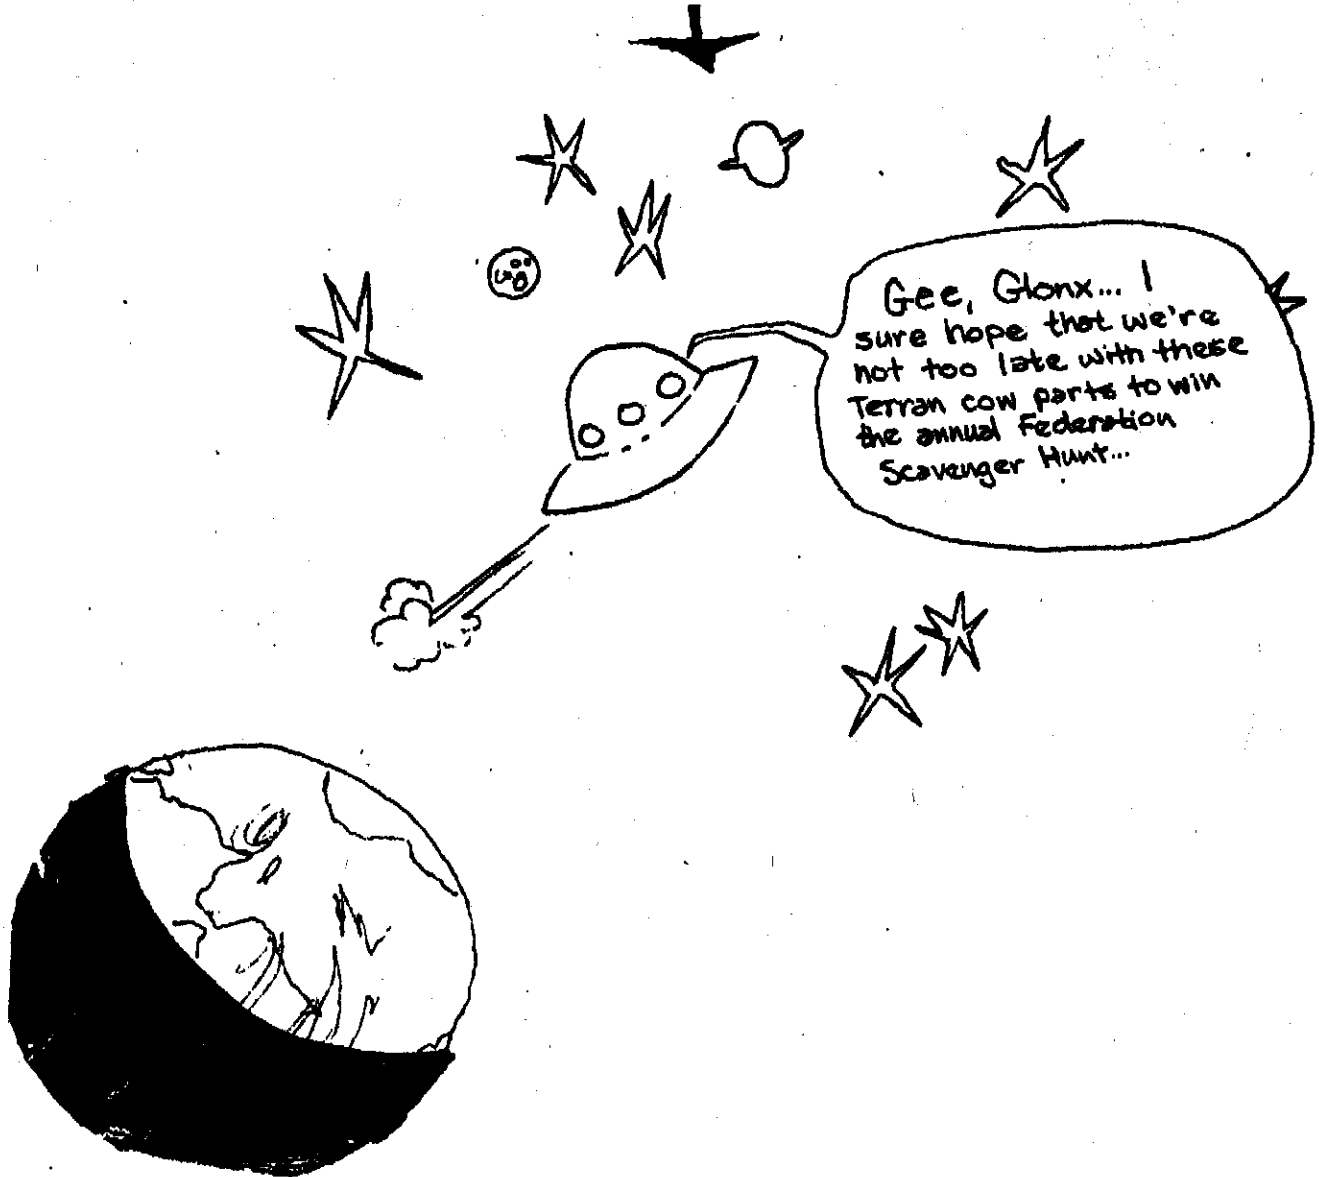 Gee, Glonx... I
sure hope that we're
not too late with these
Terran cow parts to win
the annual Federation
Scavenger Hunt...